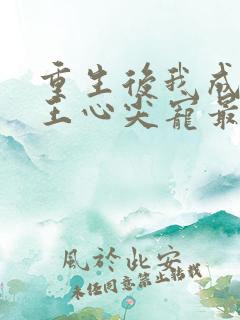 重生後我成
王心尖寵最
風於此安
未經同意禁止轉載